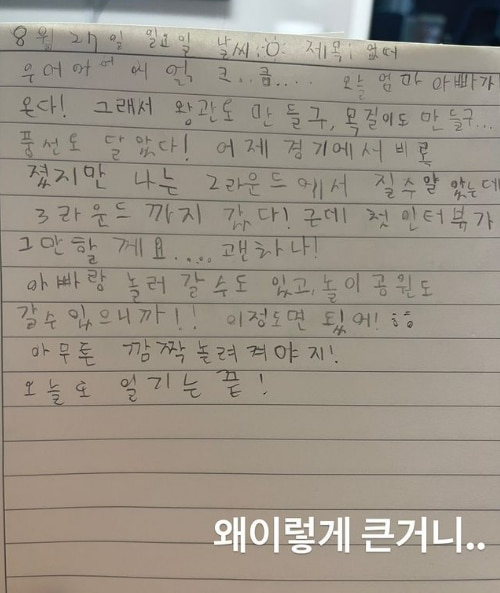 8월 27일 일요일 날씨:☼ 제목: 없어
우어어어에 엌 크..큼.... 오늘 엄마 아빠가
온다! 그래서 왕관도 만들구, 목걸이도 만들구...
풍선도 달았다! 어제 경기에서 비록
졌지만 나는 2라운드에서 질수알았는데
3라운드 까지 갔다! 근데 첫 인터뷰가
그만할께요.... 괜차나!
아빠랑 놀러 갈수도 있고, 놀이공원도
갈수있으니까!! 이정도면 됬어!
아무튼 깜짝놀려켜야지!
오늘도 일기는 끝!
왜이렇게 큰거니..